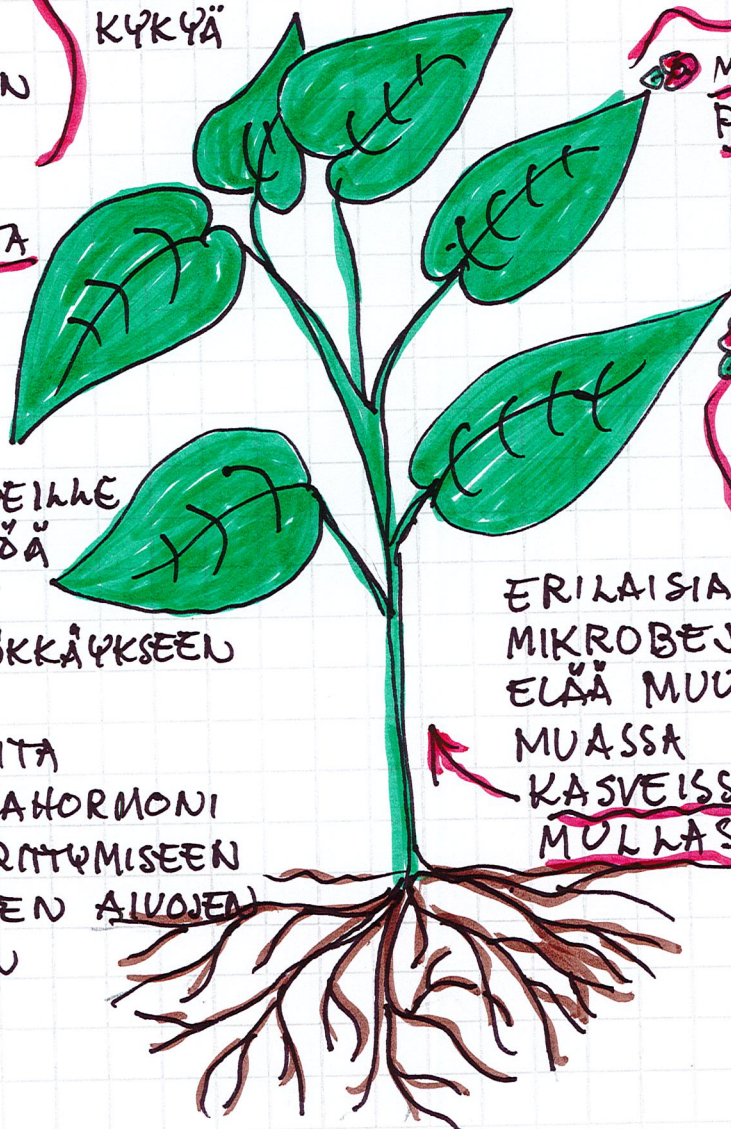 KYKYÄ
N
A
EILLE
ÖÄ
KKÄYKSEEN
ITA
AHORMONI
RITTYMISEEN
EN AIVOJEN
N
M
ERILAISIA
MIKROBEJ
ELÄÄ MUU
MUASSA
KASVEISS
MULLAS